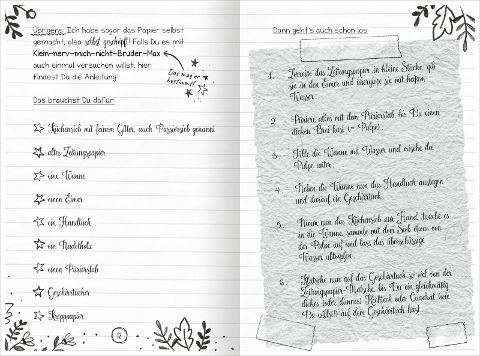 Übrigens: Ich habe sogar das Papier selbst
gemacht, also selbst geschöpft! Falls Du es mit
Klein-nerv-mich-nicht-Bruder-Max
auch einmal versuchen willst, hier
findest Du die Anleitung.
Das mag er
bestimmt!
Das brauchst Du dafür:
Küchensieb mit feinem Gitter, auch Passiersieb genannt
altes Zeitungspapier
eine Wanne
einen Eimer
ein Handtuch
ein Nudelholz
einen Pürierstab
Geschirrtücher
Krepppapier
12
Dann geht's auch schon los:
1. Zerreiße das Zeitungspapier in kleine Stücke, gib
sie in den Eimer und übergieße sie mit heißem
Wasser.
2. Püriere alles mit dem Pürierstab, bis Du einen
dicken Brei hast (= Pulpe).
3. Fülle die Wanne mit Wasser und mische die
Pulpe unter.
4. Neben die Wanne nun das Handtuch auslegen
und darauf ein Geschirrtuch.
5. Nimm nun das Küchensieb zur Hand, tauche es
in die Wanne, sammle mit dem Sieb etwas von
der Pulpe auf und lass das überschüssige
Wasser abtropfen.
6. Klatsche nun auf das Geschirrtuch so viel von der
Zeitungspapier-Matsche, bis Du ein gleichmäßig
dickes (oder dünnes) Rechteck oder Quadrat (wie
Du willst) auf dem Geschirrtuch hast.